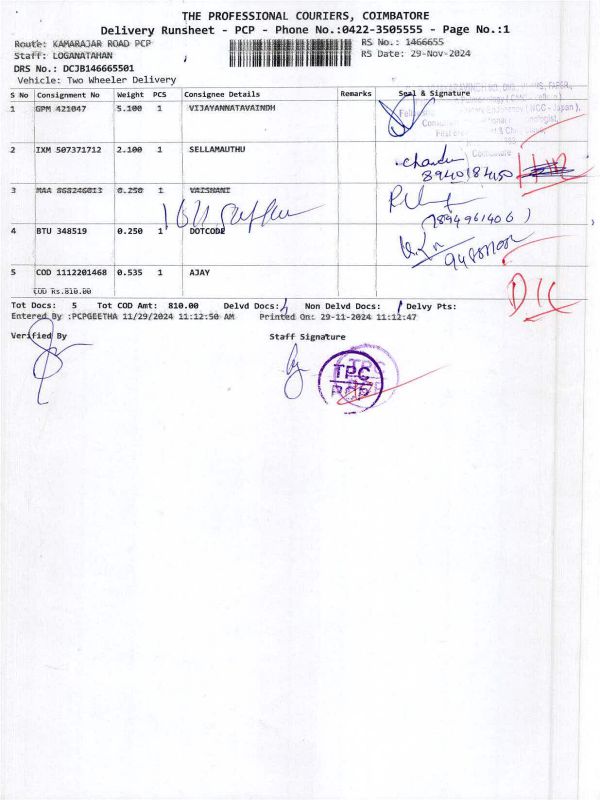 THE PROFESSIONAL COURIERS, COIMBATORE
Delivery Runsheet - PCP - Phone No.:0422-3505555 - Page No.:1
Route: KAMARAJAR ROAD PCP RS No.: 1466655
Staff: LOGANATAHAN RS Date: 29-Nov-2024
DRS No.: DCJB146665501
Vehicle: Two Wheeler Delivery
S No Consignment No Weight PCS Consignee Details Remarks Seal & Signature
1 GPM 421047 5.100 1 VIJAYANNATAVAINDH
2 IXM 507371712 2.100 1 SELLAMAUTHU
8940184150
3 MAA 868246013 0.250 1 VAISHANI
(7894961406)
4 BTU 348519 0.250 1 DOTCODE
5 COD 1112201468 0.535 1 AJAY
COD Rs.810.00
D/C
Tot Docs: 5 Tot COD Amt: 810.00 Delvd Docs: 4 Non Delvd Docs: 1 Delvy Pts:
Entered By :PCPGEETHA 11/29/2024 11:12:50 AM Printed On: 29-11-2024 11:12:47
Verified By Staff Signature
TPC
PCP